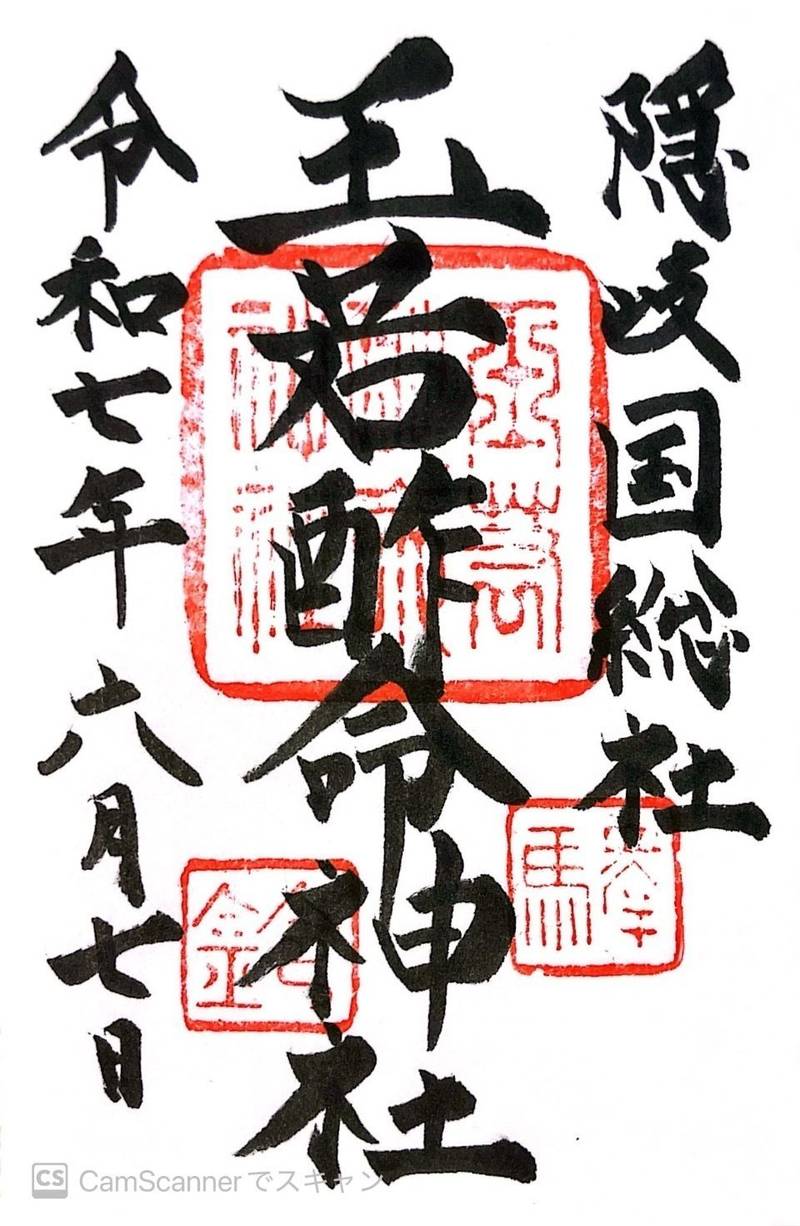 隠岐国総社
玉若酢命神社
令和七年 六月七日
CamScanner でスキャン